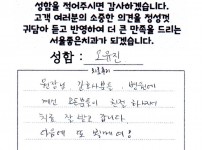 성함을 적어주시면 감사하겠습니다.
고객 여러분의 소중한 의견을 정성껏
귀담아 듣고 반영하여 더 큰 만족을 드리는
서울좋은치과가 되겠습니다.
성함 : 오유진
원장님, 간호사분들, 병원에
계신 모든분들이 친절 하시네
치료 잘 받고 갑니다.
다음에 또 뵐게여!